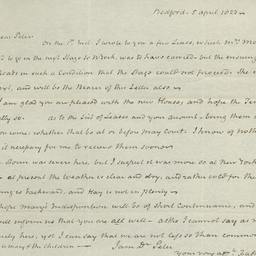 Bedford. 5 april 1823
Dear Peter
On the 1st Inst I wrote to you a few Lines, which Mr. Mo
to go in the next Stage to York, was to have carried but the ensuing
Roads in such a Condition that the Stage could not proceed. He
and will be the Bearer of this Letter also
I am glad you are pleased with the new House, and hope the Ten
so. as to the End of Leases and your account, bring them
you come; whether that be at or before May Court. I know of noth
it necessary for me to receive them sooner
was severe here, but I suspect it was more so at New York
at present the weather is clear and dry, and rather cold for the
is backward, and Hay is not in plenty
hope Mary's Indisposition will be of short Continuance, and
will inform us that you are all well altho I cannot say as m
here, yet I can say that we are not less so than common
many of the Children I am Dr. Peter
your very affte. Fath